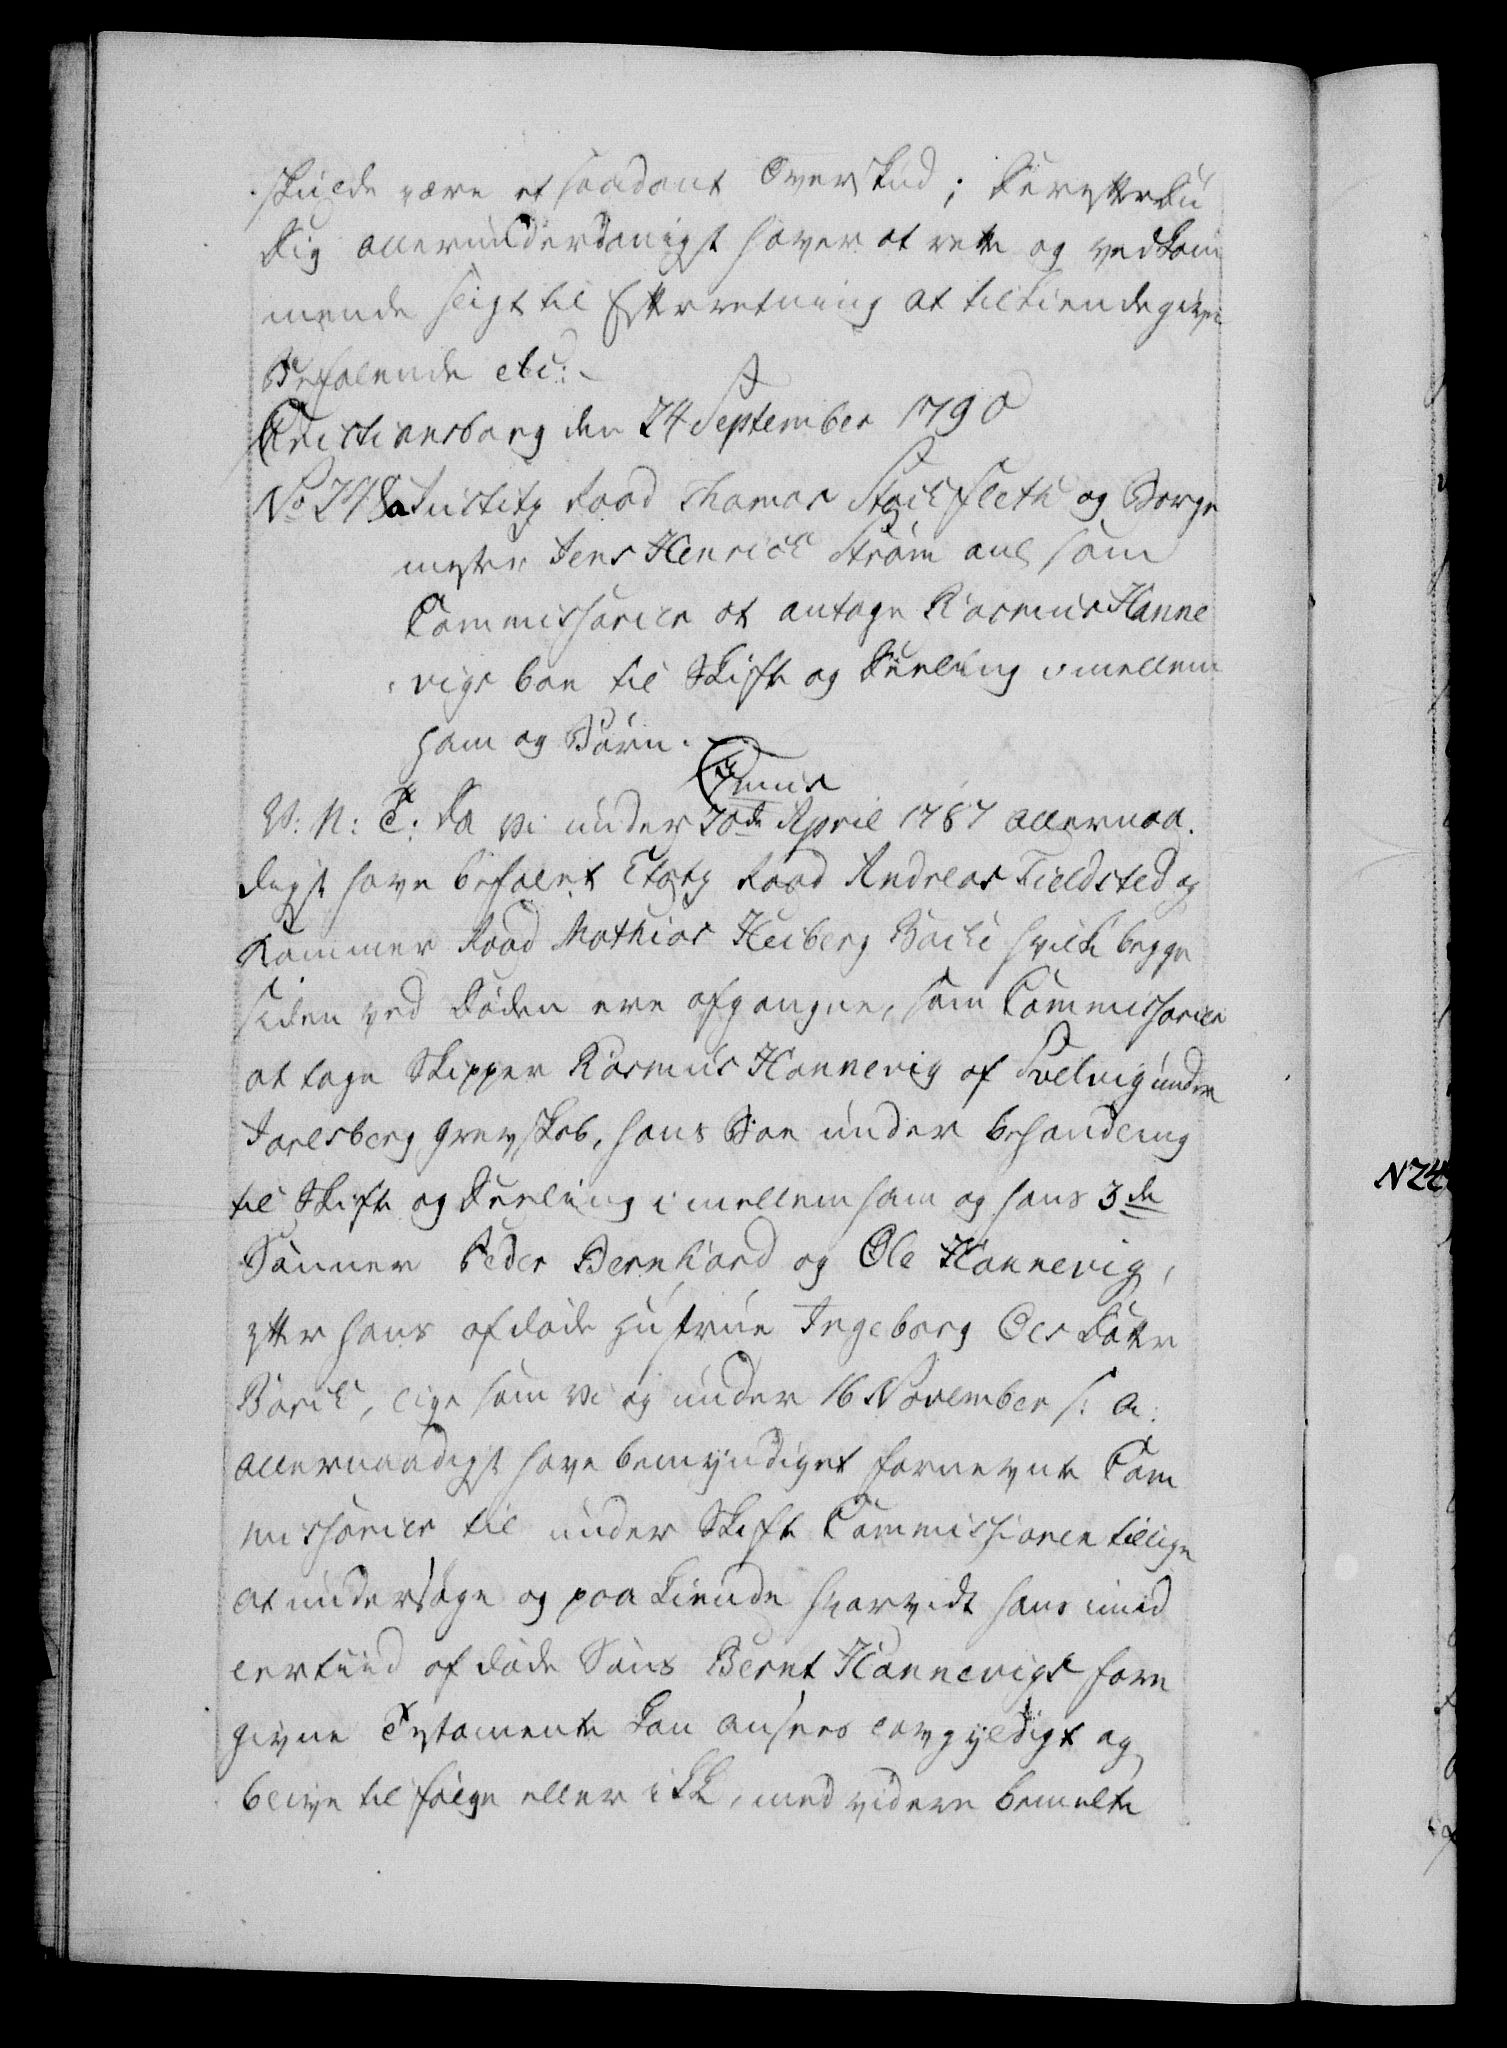 skulde være et saadant Overskud; Derefter Du
Dig allerunderdanigst haver at rette og vedkom
mende sligt til Efterretning at tilkiendegive
Befalende etc:
Christiansborg den 24 September 1790
No 248a Justitz Raad Thomas Stockfleth og Borge
mester Jens Henrich Strøm anl som
Commissarier at antage Rasmus Hanne
vigs boe til Skifte og Deeling imellem
ham og Børn.
Cmus
V: N: T: Da vi under 20de April 1787 allernaa.
digst have befalet Etatz Raad Andreas Fieldsted og
Kammer Raad Mathias Heiberg Bache hvilke begge
siden ved Døden ere afgangne, som Commissarier
at tage Skipper Rasmus Hannevig af Svelvig under
Jarlsberg Grevskab, hans Boe under behandling
til Skifte og Deeling imellem ham og hans 3de
Sønner Peder Bernhard og Ole Hannevig,
efter hans afdøde Hustrue Ingeborg Ols Datter
Børick, lige som vi og under 16 November s: a:
allernaadigst have bemyndiget fornevnte Com
missarier til under Skifte Commissionen tillige
at undersøge og paa kiende hvorvidt hans imid
lertiid afdøde Søns Bernt Hannevigs fore
givne Testamente kan ansees lovgyldigt og
blive til følge eller ikke, med videre bemelte
N24